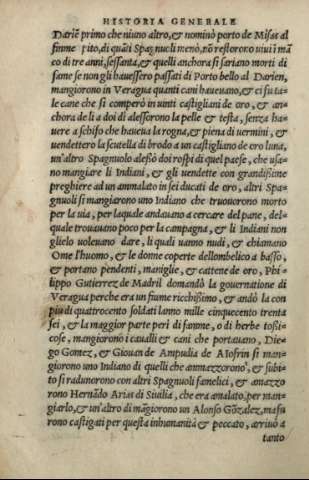 HISTORIA GENERALE
Dariē primo che niuno altro, & nominò porto de Misas al
fiume rito, di quāti Spagnuoli menò, nō restorono uiui ī mā
co di tre anni, sessanta, & quelli anchora si sariano morti di
fame se non gli hauessero passati di Porto bello al Darien,
mangiorono in Veragua quanti cani haueuano, & ci fu ta-
le cane che si comperò in uinti castigliani de oro, & an-
chora de li a doi di alessorono la pelle & testa, senza ha-
uere a schifo che haueua la rogna, & piena di uermini, &
uendettero la scutella di brodo a un castigliano de oro luna,
un'altro Spagnuolo alessò doi rospi di quel paese, che usa-
no mangiare li Indiani, & gli uendette con grandissime
preghiere ad un ammalato in sei ducati de oro, altri Spa-
gnuoli si mangiarono uno Indiano che truouorono morto
per la uia, per laquale andauano a cercare del pane, del-
quale trouauano poco per la campagna, & li Indiani non
glielo uoleuano dare, li quali uanno nudi, & chiamano
Ome l'huomo, & le donne coperte dellombelico a basso,
& portano pendenti, maniglie, & cattene de oro, Phi-
lippo Gutierrez de Madril domandò la gouernatione di
Veragua perche era un fiume ricchissimo, & andò la con
piu di quattrocento soldati lanno mille cinquecento trenta
sei, & la maggior parte perì di fame, o di herbe tossi-
cose, mangiorono i caualli & cani che portauano, Die-
go Gomez, & Giouan de Ampudia de Aiofrin si man-
giorono uno Indiano di quelli che ammazzorono, & subi-
to si radunorono con altri Spagnuoli famelici, & amazzo
rono Hernādo Arias di Siuilia, che era amalato, per man-
giarlo, & un'altro dì māgiorono un Alonso Gōzalez, ma fu
rono castigati per questa inhumanità & peccato, arriuò a
tanto